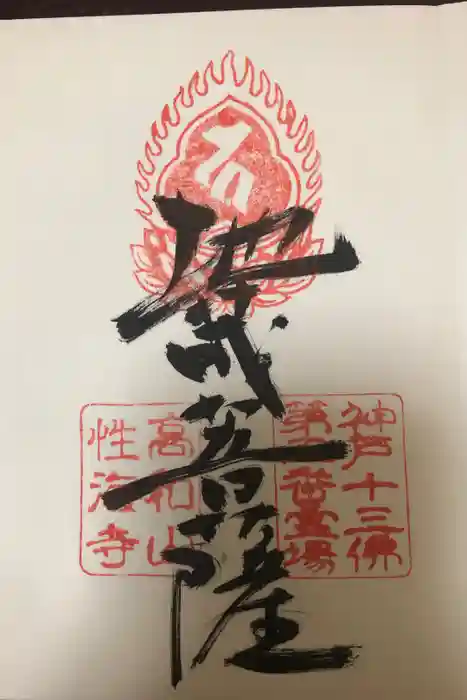 地蔵菩薩
神戸十三佛
第
番霊場
高和山
性海寺